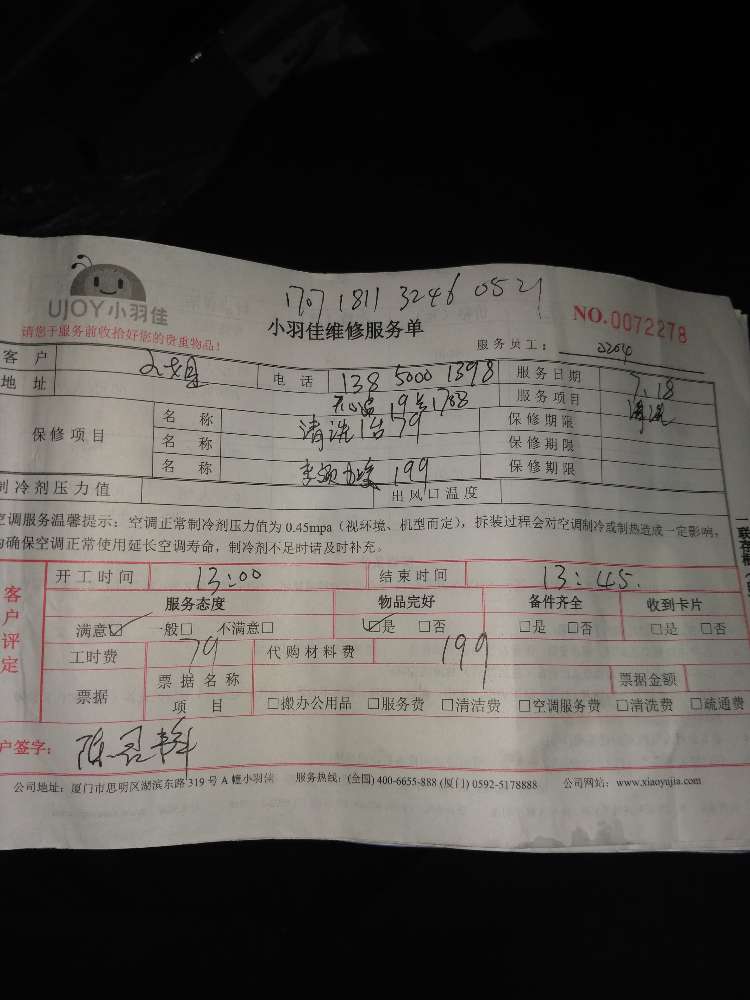 1707 1811 3246 0521
UJOY小羽佳
请您于服务前收拾好您的贵重物品!
小羽佳维修服务单
NO.0072278
服务员工: 2204
客户
电话 138 5000 1398
服务日期 7.18
地址
19号1703
服务项目 清洗
保修项目
名称 清洗1台79
保修期限
名称
保修期限
名称 199
保修期限
制冷剂压力值
出风口温度
空调服务温馨提示:空调正常制冷剂压力值为0.45mpa(视环境、机型而定),拆装过程会对空调制冷或制热造成一定影响,
为确保空调正常使用延长空调寿命,制冷剂不足时请及时补充。
客户评定
开工时间 13:00 结束时间 13:45.
服务态度 物品完好 备件齐全 收到卡片
满意☑ 一般□ 不满意□ ☑是 □否 □是 □否 □是 □否
工时费 79 代购材料费 199
票据 票据名称 票据金额
项目 □搬办公用品 □服务费 □清洁费 □空调服务费 □清洗费 □疏通费
户签字:
公司地址:厦门市思明区湖滨东路319号A幢小羽佳 服务热线:(全国)400-6655-888(厦门)0592-5178888 公司网站:www.xiaoyujia.com